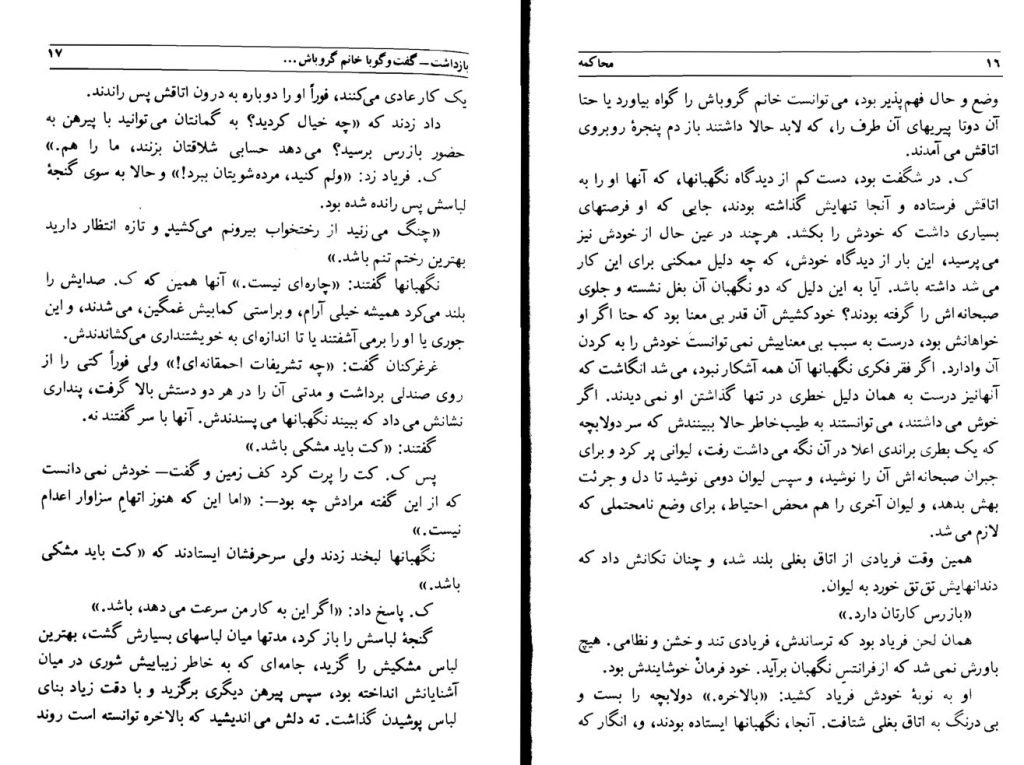 ۱۶ محاکمه
وضع و حال فهم‌پذیر بود، می‌توانست خانم گروباش را گواه بیاورد یا حتا
آن دوتا پیریهای آن طرف را، که لابد حالا داشتند باز دم پنجرهٔ روبروی
اتاقش می‌آمدند.
ک. در شگفت بود، دست‌کم از دیدگاه نگهبانها، که آنها او را به
اتاقش فرستاده و آنجا تنهایش گذاشته بودند، جایی که او فرصتهای
بسیاری داشت که خودش را بکشد. هرچند در عین حال از خودش نیز
می‌پرسید، این بار از دیدگاه خودش، که چه دلیل ممکنی برای این کار
می‌شد داشته باشد. آیا به این دلیل که دو نگهبان آن بغل نشسته و جلوی
صبحانه‌اش را گرفته بودند؟ خودکشیش آن قدر بی‌معنا بود که حتا اگر او
خواهانش بود، درست به سبب بی‌معناییش نمی‌توانست خودش را به کردن
آن وادارد. اگر فقر فکری نگهبانها آن همه آشکار نبود، می‌شد انگاشت که
آنهانیز درست به همان دلیل خطری در تنها گذاشتن او نمی‌دیدند. اگر
خوش می‌داشتند، می‌توانستند به طیب‌خاطر حالا ببینندش که سر دولابچه
که یک بطری براندی اعلا در آن نگه می‌داشت رفت، لیوانی پر کرد و برای
جبران صبحانه‌اش آن را نوشید، و سپس لیوان دومی نوشید تا دل و جرئت
بهش بدهد، و لیوان آخری را هم محض احتیاط، برای وضع نامحتملی که
لازم می‌شد.
همین وقت فریادی از اتاق بغلی بلند شد، و چنان تکانش داد که
دندانهایش تق‌تق خورد به لیوان.
«بازرس کارتان دارد.»
همان لحن فریاد بود که ترساندش، فریادی تند و خشن و نظامی. هیچ
باورش نمی‌شد که از فرانتسِ نگهبان برآید. خود فرمانْ خوشایندش بود.
او به نوبهٔ خودش فریاد کشید: «بالاخره.» دولابچه را بست و
بی‌درنگ به اتاق بغلی شتافت. آنجا، نگهبانها ایستاده بودند، و، انگار که
بازداشت ــ گفت‌وگو با خانم گروباش ... ۱۷
یک کار عادی می‌کنند، فوراً او را دوباره به درون اتاقش پس راندند.
داد زدند که «چه خیال کردید؟ به گمانتان می‌توانید با پیرهن به
حضور بازرس برسید؟ می‌دهد حسابی شلاقتان بزنند، ما را هم.»
ک. فریاد زد: «ولم کنید، مرده‌شویتان ببرد!» و حالا به سوی گنجهٔ
لباسش پس رانده شده بود.
«چنگ می‌زنید از رختخواب بیرونم می‌کشید و تازه انتظار دارید
بهترین رختم تنم باشد.»
نگهبانها گفتند: «چاره‌ای نیست.» آنها همین که ک. صدایش را
بلند می‌کرد همیشه خیلی آرام، و براستی کمابیش غمگین، می‌شدند، و این
جوری یا او را برمی‌آشفتند یا تا اندازه‌ای به خویشتنداری می‌کشاندندش.
غرغرکنان گفت: «چه تشریفات احمقانه‌ای!» ولی فوراً کتی را از
روی صندلی برداشت و مدتی آن را در هر دو دستش بالا گرفت، پنداری
نشانش می‌داد که ببیند نگهبانها می‌پسندندش. آنها با سر گفتند نه.
گفتند: «کت باید مشکی باشد.»
پس ک. کت را پرت کرد کف زمین و گفت ــ خودش نمی‌دانست
که از این گفته مرادش چه بود ــ: «اما این که هنوز اتهامِ سزاوار اعدام
نیست.»
نگهبانها لبخند زدند ولی سرحرفشان ایستادند که «کت باید مشکی
باشد.»
ک. پاسخ داد: «اگر این به کار من سرعت می‌دهد، باشد.»
گنجهٔ لباسش را باز کرد، مدتها میان لباسهای بسیارش گشت، بهترین
لباس مشکیش را گزید، جامه‌ای که به خاطر زیباییش شوری در میان
آشنایانش انداخته بود، سپس پیرهن دیگری برگزید و با دقت زیاد بنای
لباس پوشیدن گذاشت. ته دلش می‌اندیشید که بالاخره توانسته است روند